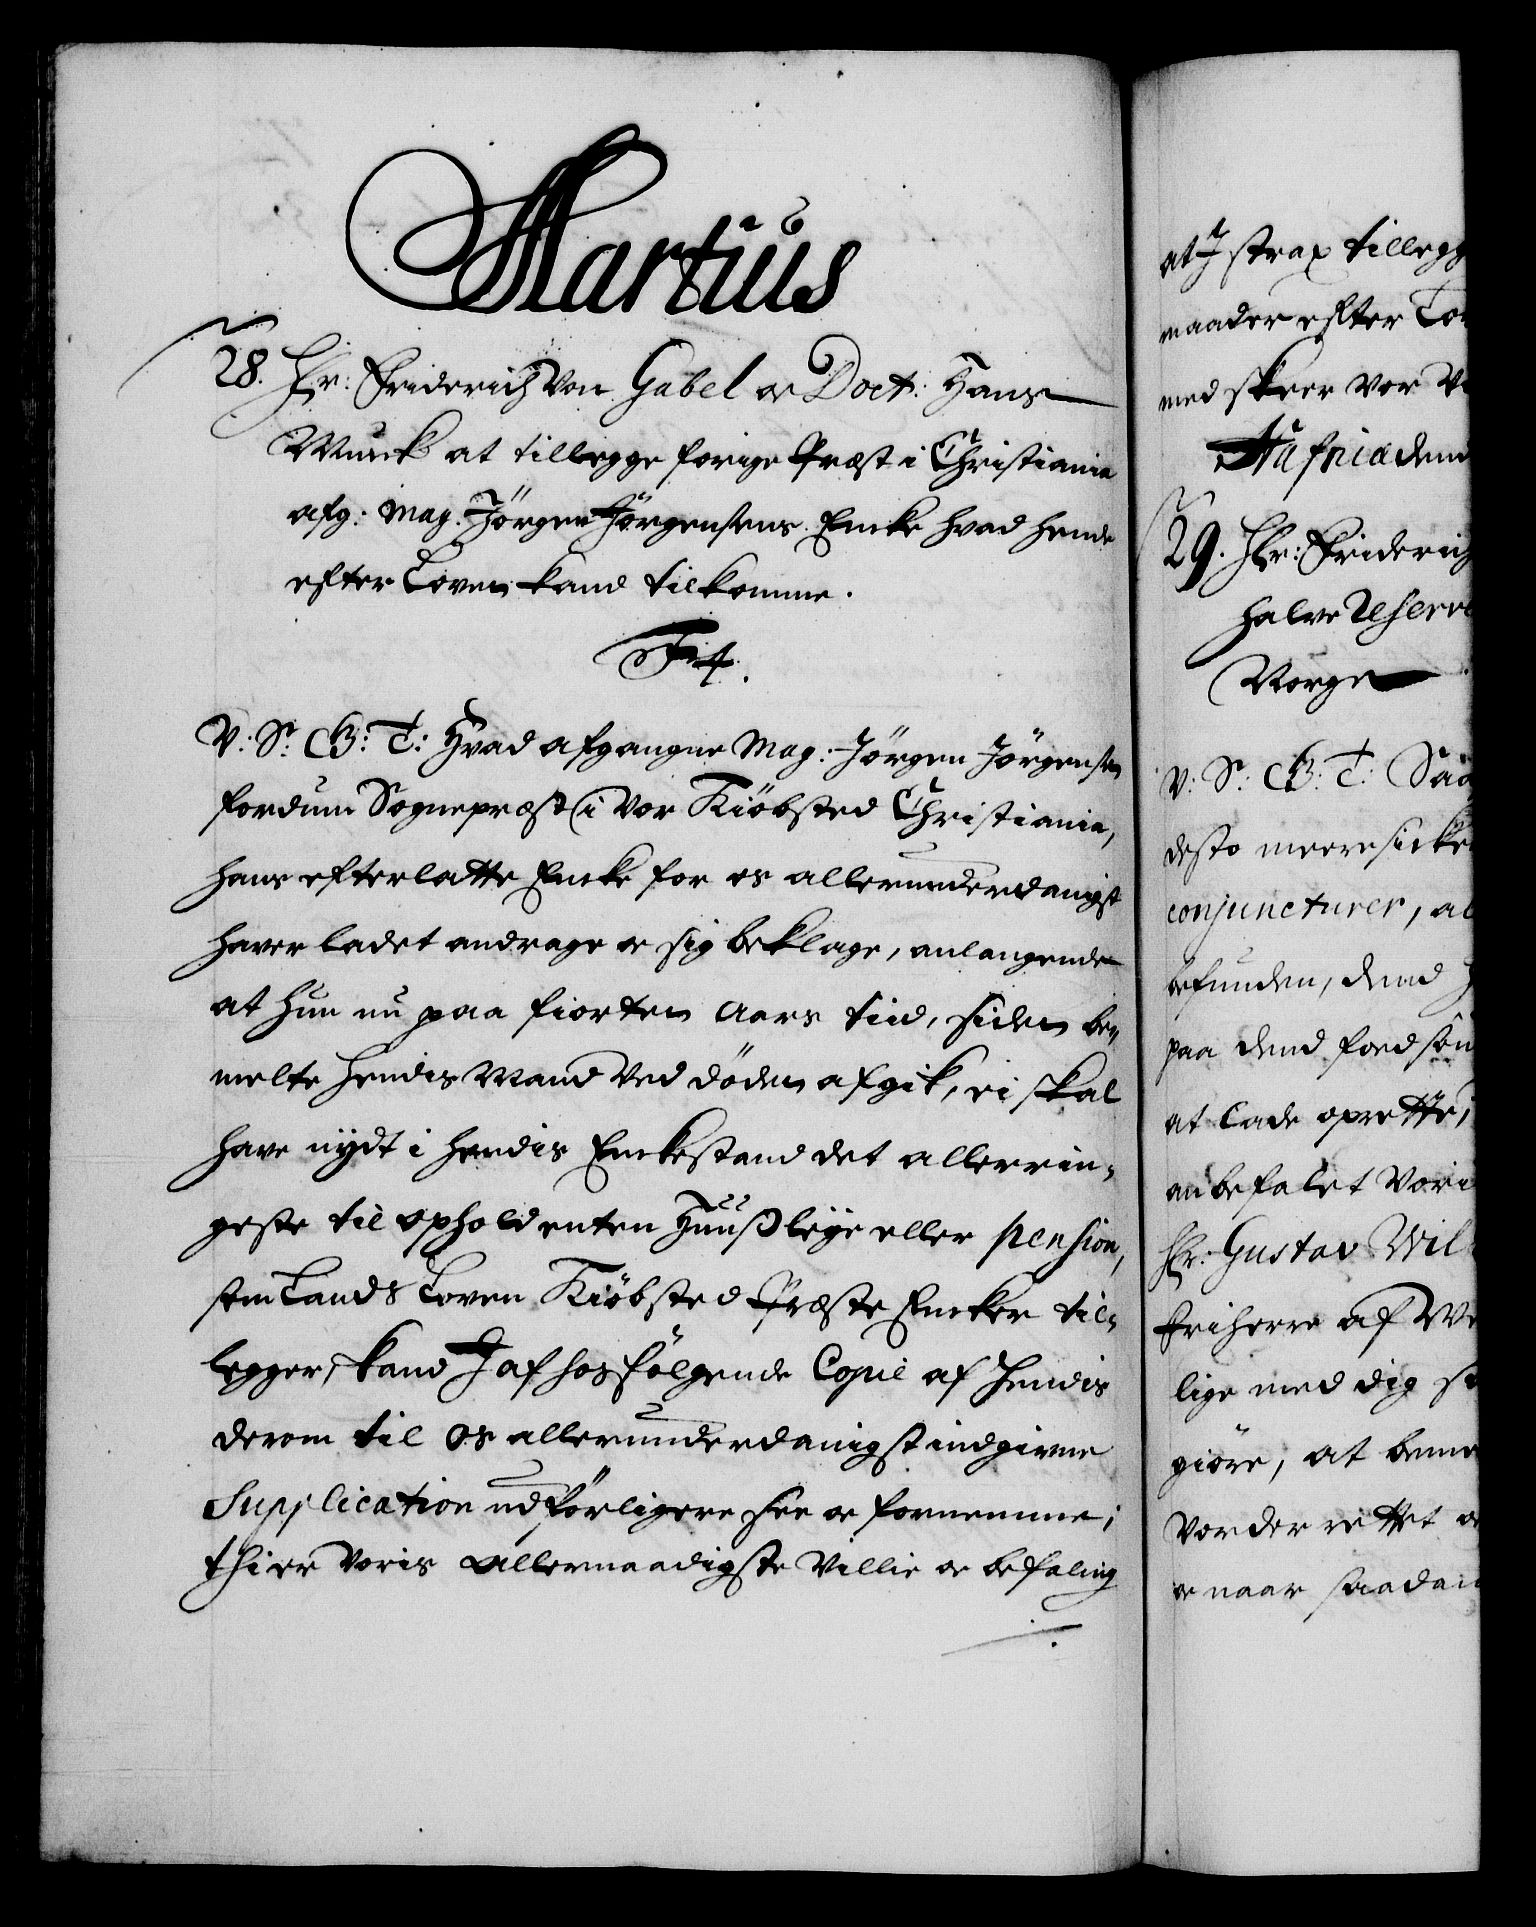 Martius
28. Hr: Friderich Von Gabel oc Doct: Hans
Munk at tillegge forige Præst i Christiania
afg: Mag. Jörgen Jörgensens Encke hvad hende
efter Loven kand tilkomme.
F 4.
V: S: G: T: Hvad afgangne Mag: Jörgen Jörgensen
fordum Sognepræst i vor Kiöbsted Christiania,
hans efterlatte Encke for os allerunderdanigst
haver ladet andrage oc sig beklage, anlangende
at hun nu paa fiorten Aars tiid, siden be,,
melte hendis Mand ved döden afgik, ei skal
have nÿdt i hendis Enckestand det allerrin,,
geste til ophold enten Huusleÿe eller pension,
som Lands Loven Kiöbsted Præste Encker til,,
legger, kand J af hosfölgende Copie af hendis
derom til Os allerunderdanigst indgivne
Supplication udförligere see oc fornemme;
thi er Voris Allernaadigste Villie oc befaling
at J strax tillegg
maader efter Lo
med skeer vor V
Hafnia dend
29. Hr: Friderich
halve
Norge
V: S: G: T: Saa
desto meere sicke
conjuncturer, al
befunden, dend
paa dend
at lade oprette,
anbefalet Vori
Hr: Gustav Wil
Friherre af We
lige med dig
giöre, at beme
Vorder rettet oc
oc naar saadan